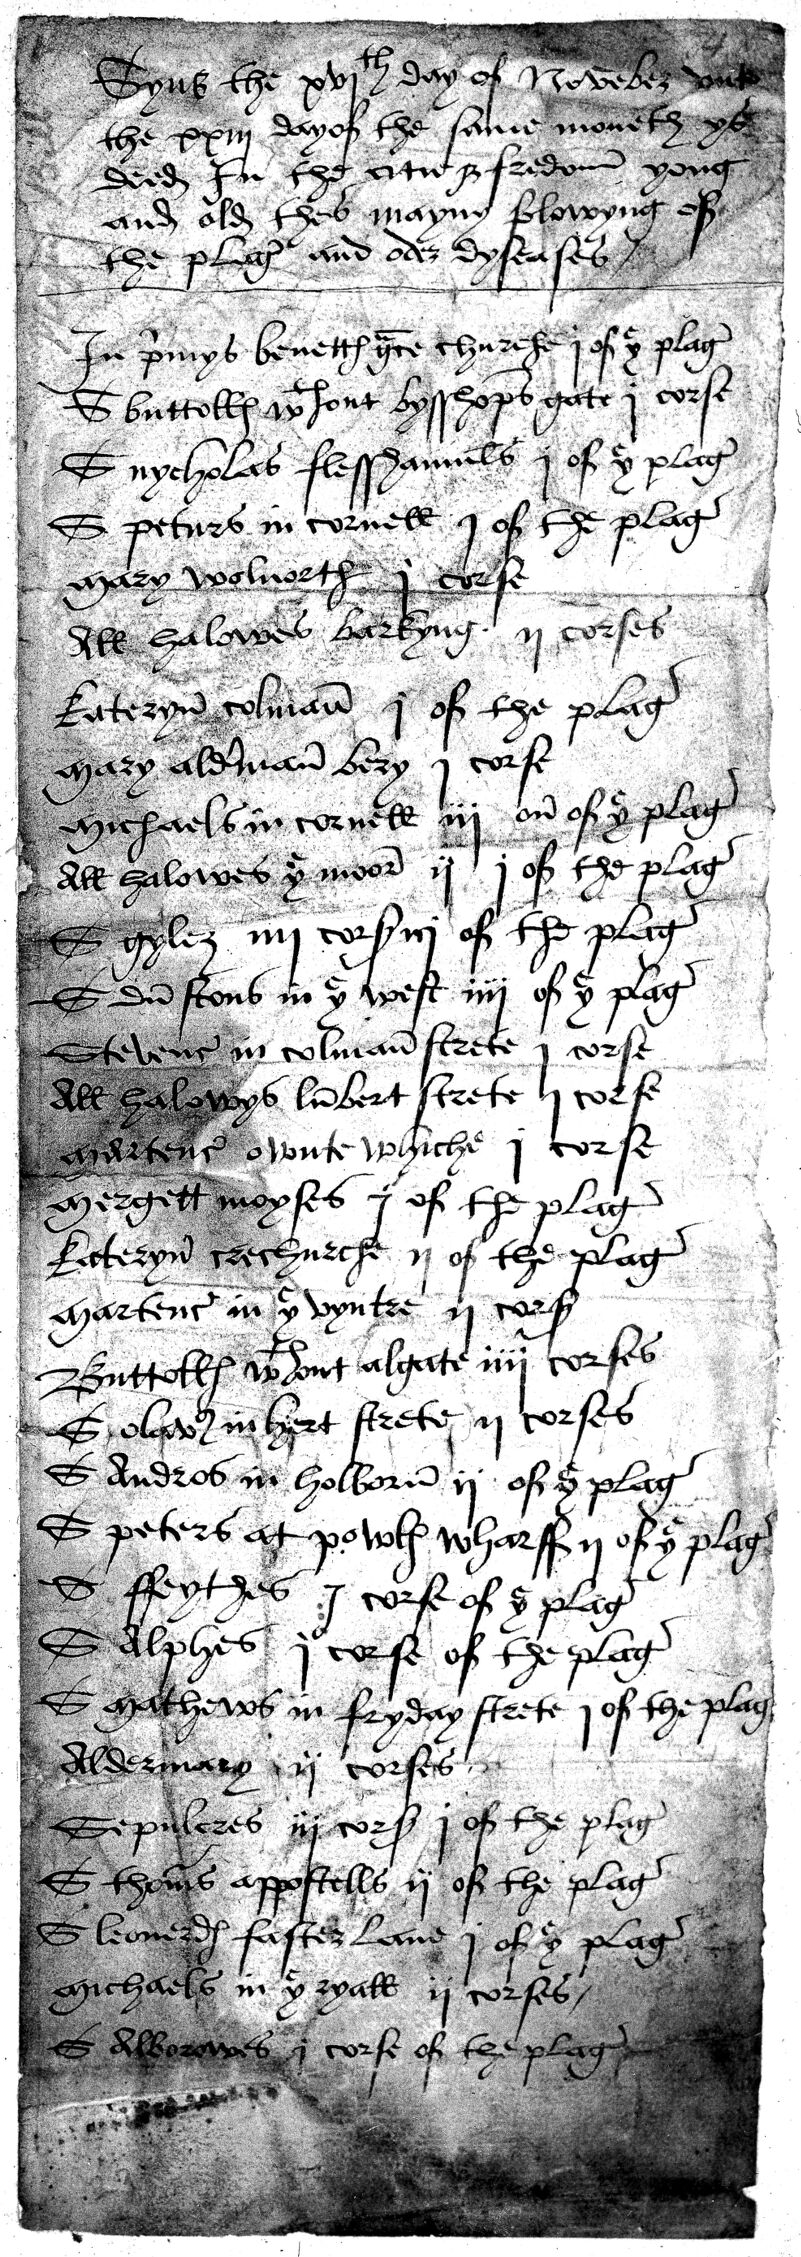 Syns the xvj th day of Novēber unto
the xxiij day of the same moneth ys
deed In the citie & fredom yong
and old thes mayny folowyng of
the plage and oder dyseases
In p'mys benetts g'ce churche j of yͤ plage
S buttolls wͭhout bysshops gate j corse
S nycholas flesshamells j of yͤ plage
S peturs in cornell j of the plage
mary wolnorth j corse
All halowes barkyng ij corses
Kateryn colman j of the plage
mary aldermanbery j corse
michaels in cornell iij on of yͤ plage
All halowes yͤ moor ij j of the plage
S gylez iiij cors iij of the plage
S dunstons in yͤ west iiij of yͤ plage
Stevens in colman strete j corse
All halowys lumbert strete j corse
martens owute whiche j corse
mergett moyses j of the plage
Kateryn crechurche ij of the plage
martens in yͤ vyntre ij cors
Buttolls wͭhout algate iiij corses
S olavs in hert strete ij corses
S Andros in holborn ij of yͤ plage
S peters at powls wharff ij of yͤ plage
S ffeythes j corse of yͤ plage
S Alphes j corse of the plage
S mathews in fryday strete j of the plage
Aldermary ij corses
Sepulcres iij cors j of the plage
S thoms appostells ij of the plage
S leonerds faster lane j of yͤ plage
michaels in yͤ ryall ij corses
S Alborowes j corse of the plage